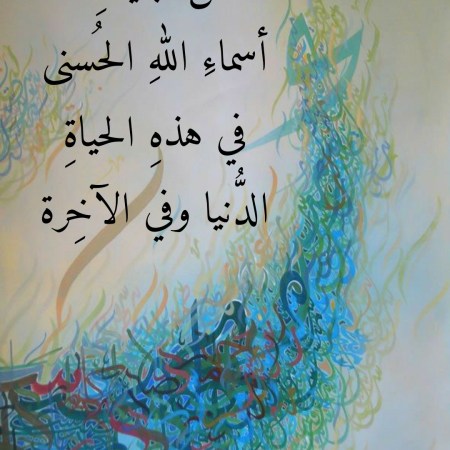 أسماءِ اللهِ الحُسنى
في هذهِ الحياةِ
الدُّنيا وفي الآخِرة